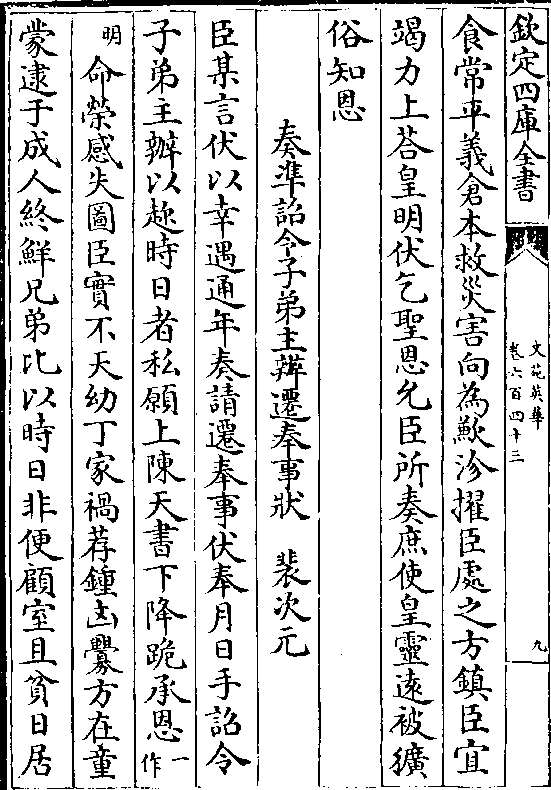 欽定四庫全書
文苑英華
卷六百四十三
九
食常平義倉本救災害向為歉沴擢臣處之方鎮臣宜
竭力上荅皇明伏乞聖恩允臣所奏庶使皇靈逺被獷
俗知恩
奏準詔令子弟主辦遷奉事狀 裴次元
臣某言伏以幸遇通年奏請遷奉事伏奉月日手詔令
子弟主辦以趂時日者私願上陳天書下降跪承恩一作
明命榮感失圖臣實不天幼丁家禍荐鍾凶釁方在童
蒙逮于成人終鮮兄弟比以時日非便顧室且貧日居